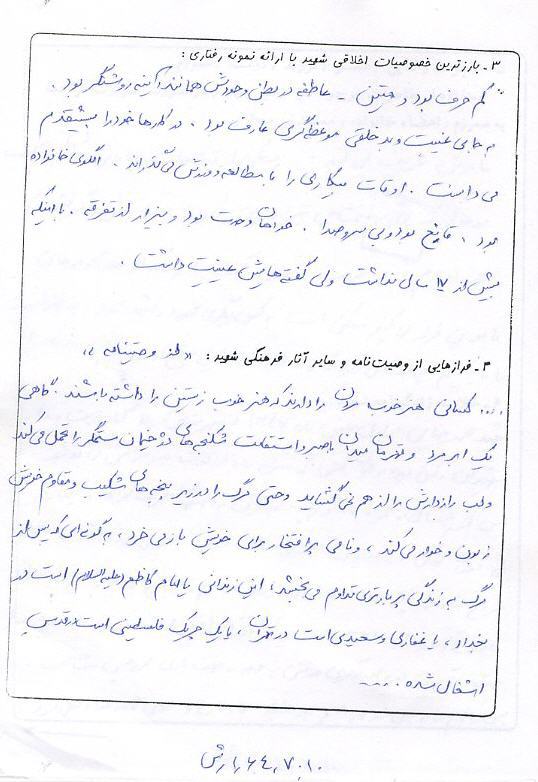 ۳ـ بارزترین خصوصیات اخلاقی شهید با ارائه نمونه رفتاری :
کم حرف بود و متین ـ عاطفه در بطن وجودش همانند آئینه روشنگر بود .
به جای غیبت و بدخلقی موعظه‌گری عارف بود . در کارها خود را پیشقدم
می دانست . اوقات بیکاری را با مطالعه و ورزش می گذراند . الگوی خانواده
بود ، قانع بود و بی سر و صدا . خواهان وحدت بود و بیزار از تفرقه . با اینکه
بیش از ۱۷ سال نداشت ولی گفته هایش عینیت داشت .
۴ـ فرازهایی از وصیت‌نامه و سایر آثار فرهنگی شهید :
.... کسانی هنر خوب مردن را دارند که هنر خوب زیستن را داشته باشند . گاهی
یک ابرمرد و قهرمان میدان با صبر و استقامت شکنجه های دژخیمان ستمگر را تحمل می کند
و لب رازدارش را از هم نمی گشاید و حتی مرگ را در زیر پنجه های شکیب و مقاوم خویش
زبون و خوار می کند ، و نامی پر افتخار برای خویش باز می خرد ، به گونه ای که پس از
مرگ به زندگی پربارتری تداوم می بخشد ، این زندانی یا امام کاظم (علیه السلام) است در
بغداد ، یا غفاری و سعیدی است در تهران ، یا یک چریک فلسطینی است در قدس
اشغال شده .....
۶۴,۷,۱۰